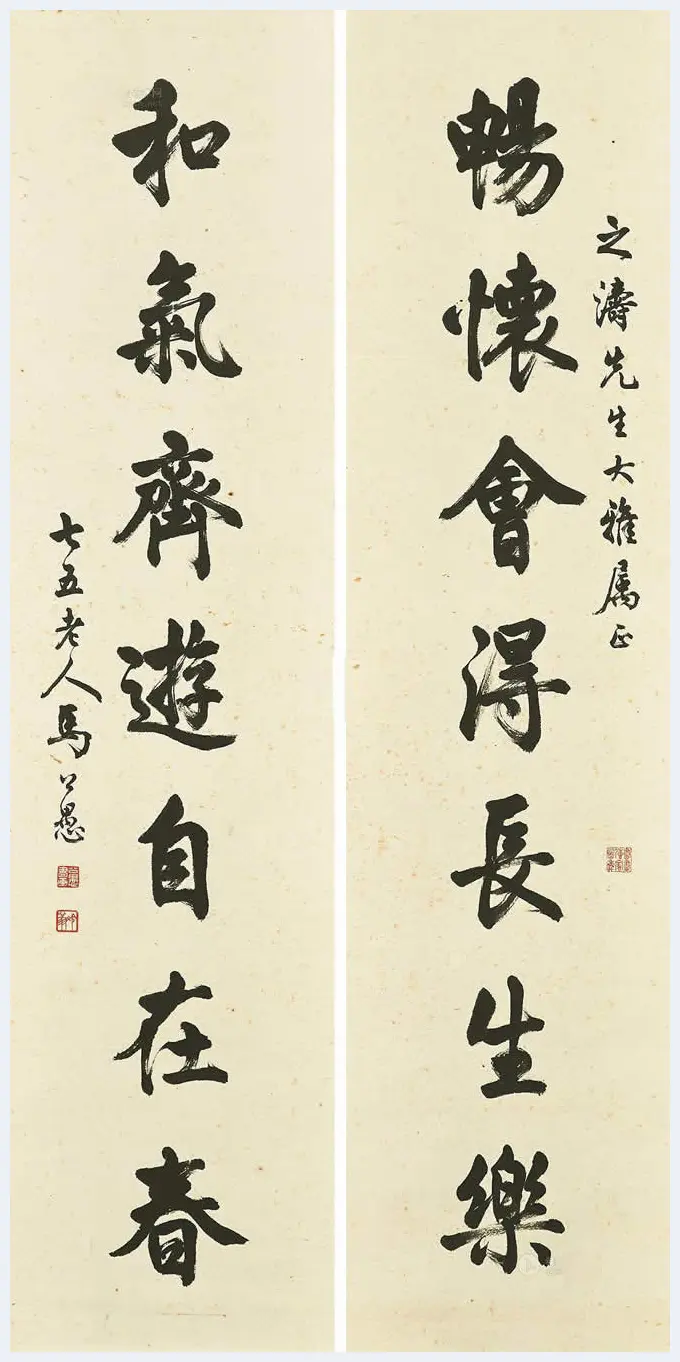 之濤先生大雅属正
暢懷會得長生樂
和氣齊遊自在春
七五老人馬公愚